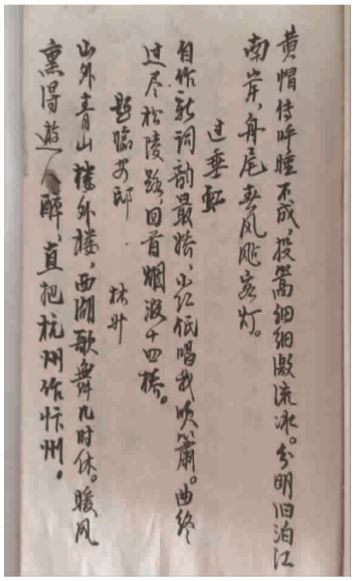 黄帽传呼睡不成，投篙细细激流冰。分明旧泊江
南岸，舟尾春风飐客灯。
过垂虹
自作新词韵最娇，小红低唱我吹箫。曲终
过尽松陵路，回首烟波十四桥。
题临安邸 林升
山外青山楼外楼，西湖歌舞几时休。暖风
熏得游人醉，直把杭州作汴州。